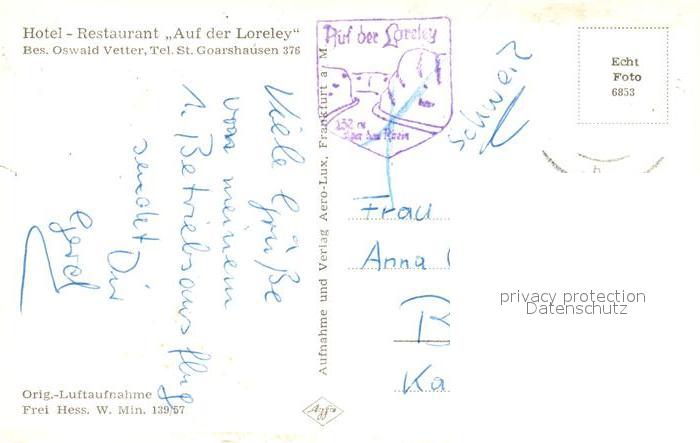 Hotel - Restaurant „Auf der Loreley“
Bes. Oswald Vetter, Tel. St. Goarshausen 376
Viele Grüße
von meinem
1. Betriebsausflug
sendet Dir
Gerd
Orig.-Luftaufnahme
Frei Hess. W. Min. 139/57
Aufnahme und Verlag Aero-Lux, Frankfurt a/M
Agfa
Auf der Loreley
132 m
über dem Rhein
Schweiz
Echt
Foto
6853
Frau
Anna
Ka
privacy protection
Datenschutz